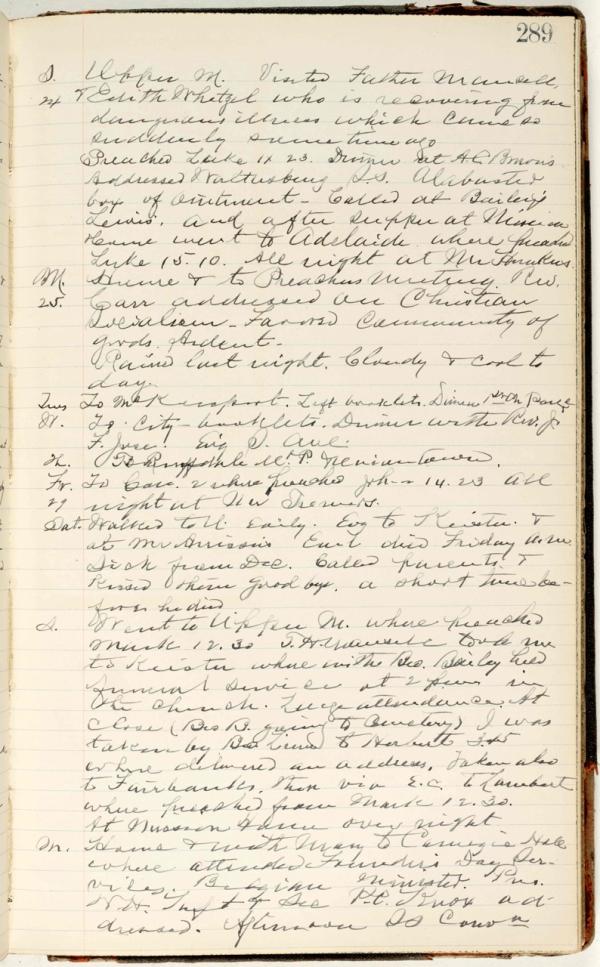 289
S. Upper M. Visited Father Mansell,
24 & Edith Whetzel who is recovering from
dangerous illness which came so
suddenly some time ago
Preached Luke 11 23. Dinner at A.C. Brown's
Addressed Waltersburg S.S. Alabaster
box of ointment - Called at Bailey's
Lewis'. and after supper at Mission
Home went to Adelaide where preached
Luke 15-10. All night at Mr
M. Home & to Preachers Meeting. Rev.
25. Carr addressed on Christian
Socialism - Favored Community of
goods. Ardent -
Rained last night. Cloudy & cool to
day.
Tues To McKeesport. Left booklets. Dinner
W. To City - booklets. Dinner with Rev. J.
F. Jose. Evg S. Ave.
Th. To M. P.
Fr. To Coal. 2 where preached Joh- 14.23 All
29 night at Mr
Sat. Walked to U. Early. Evg to Keister. &
at Mr Earl died Friday
Sick from Dec. Called parents &
Kissed them Good bye. a short time be-
fore he died
S. Went to Upper M. where preached
Mark 12.30 took me
to Keister where with the Bro. Bailey held
funeral service at 2 p.m. in
the church. Large attendance. At
close (Bro B. going to Cemetery) I was
taken by Bro to Herbert 3.45
where delivered an address. Taken also
to Fairbanks. then via E.C. to Lambert
where preached from Mark 12.30.
At Mission Home over night
M. Home & with Mary to Carnegie Hall
where attended Founder's Day Ser-
vices. Belgian Minister. Pres.
W.H. Taft & Sec P.C. Knox ad-
dressed. Afternoon